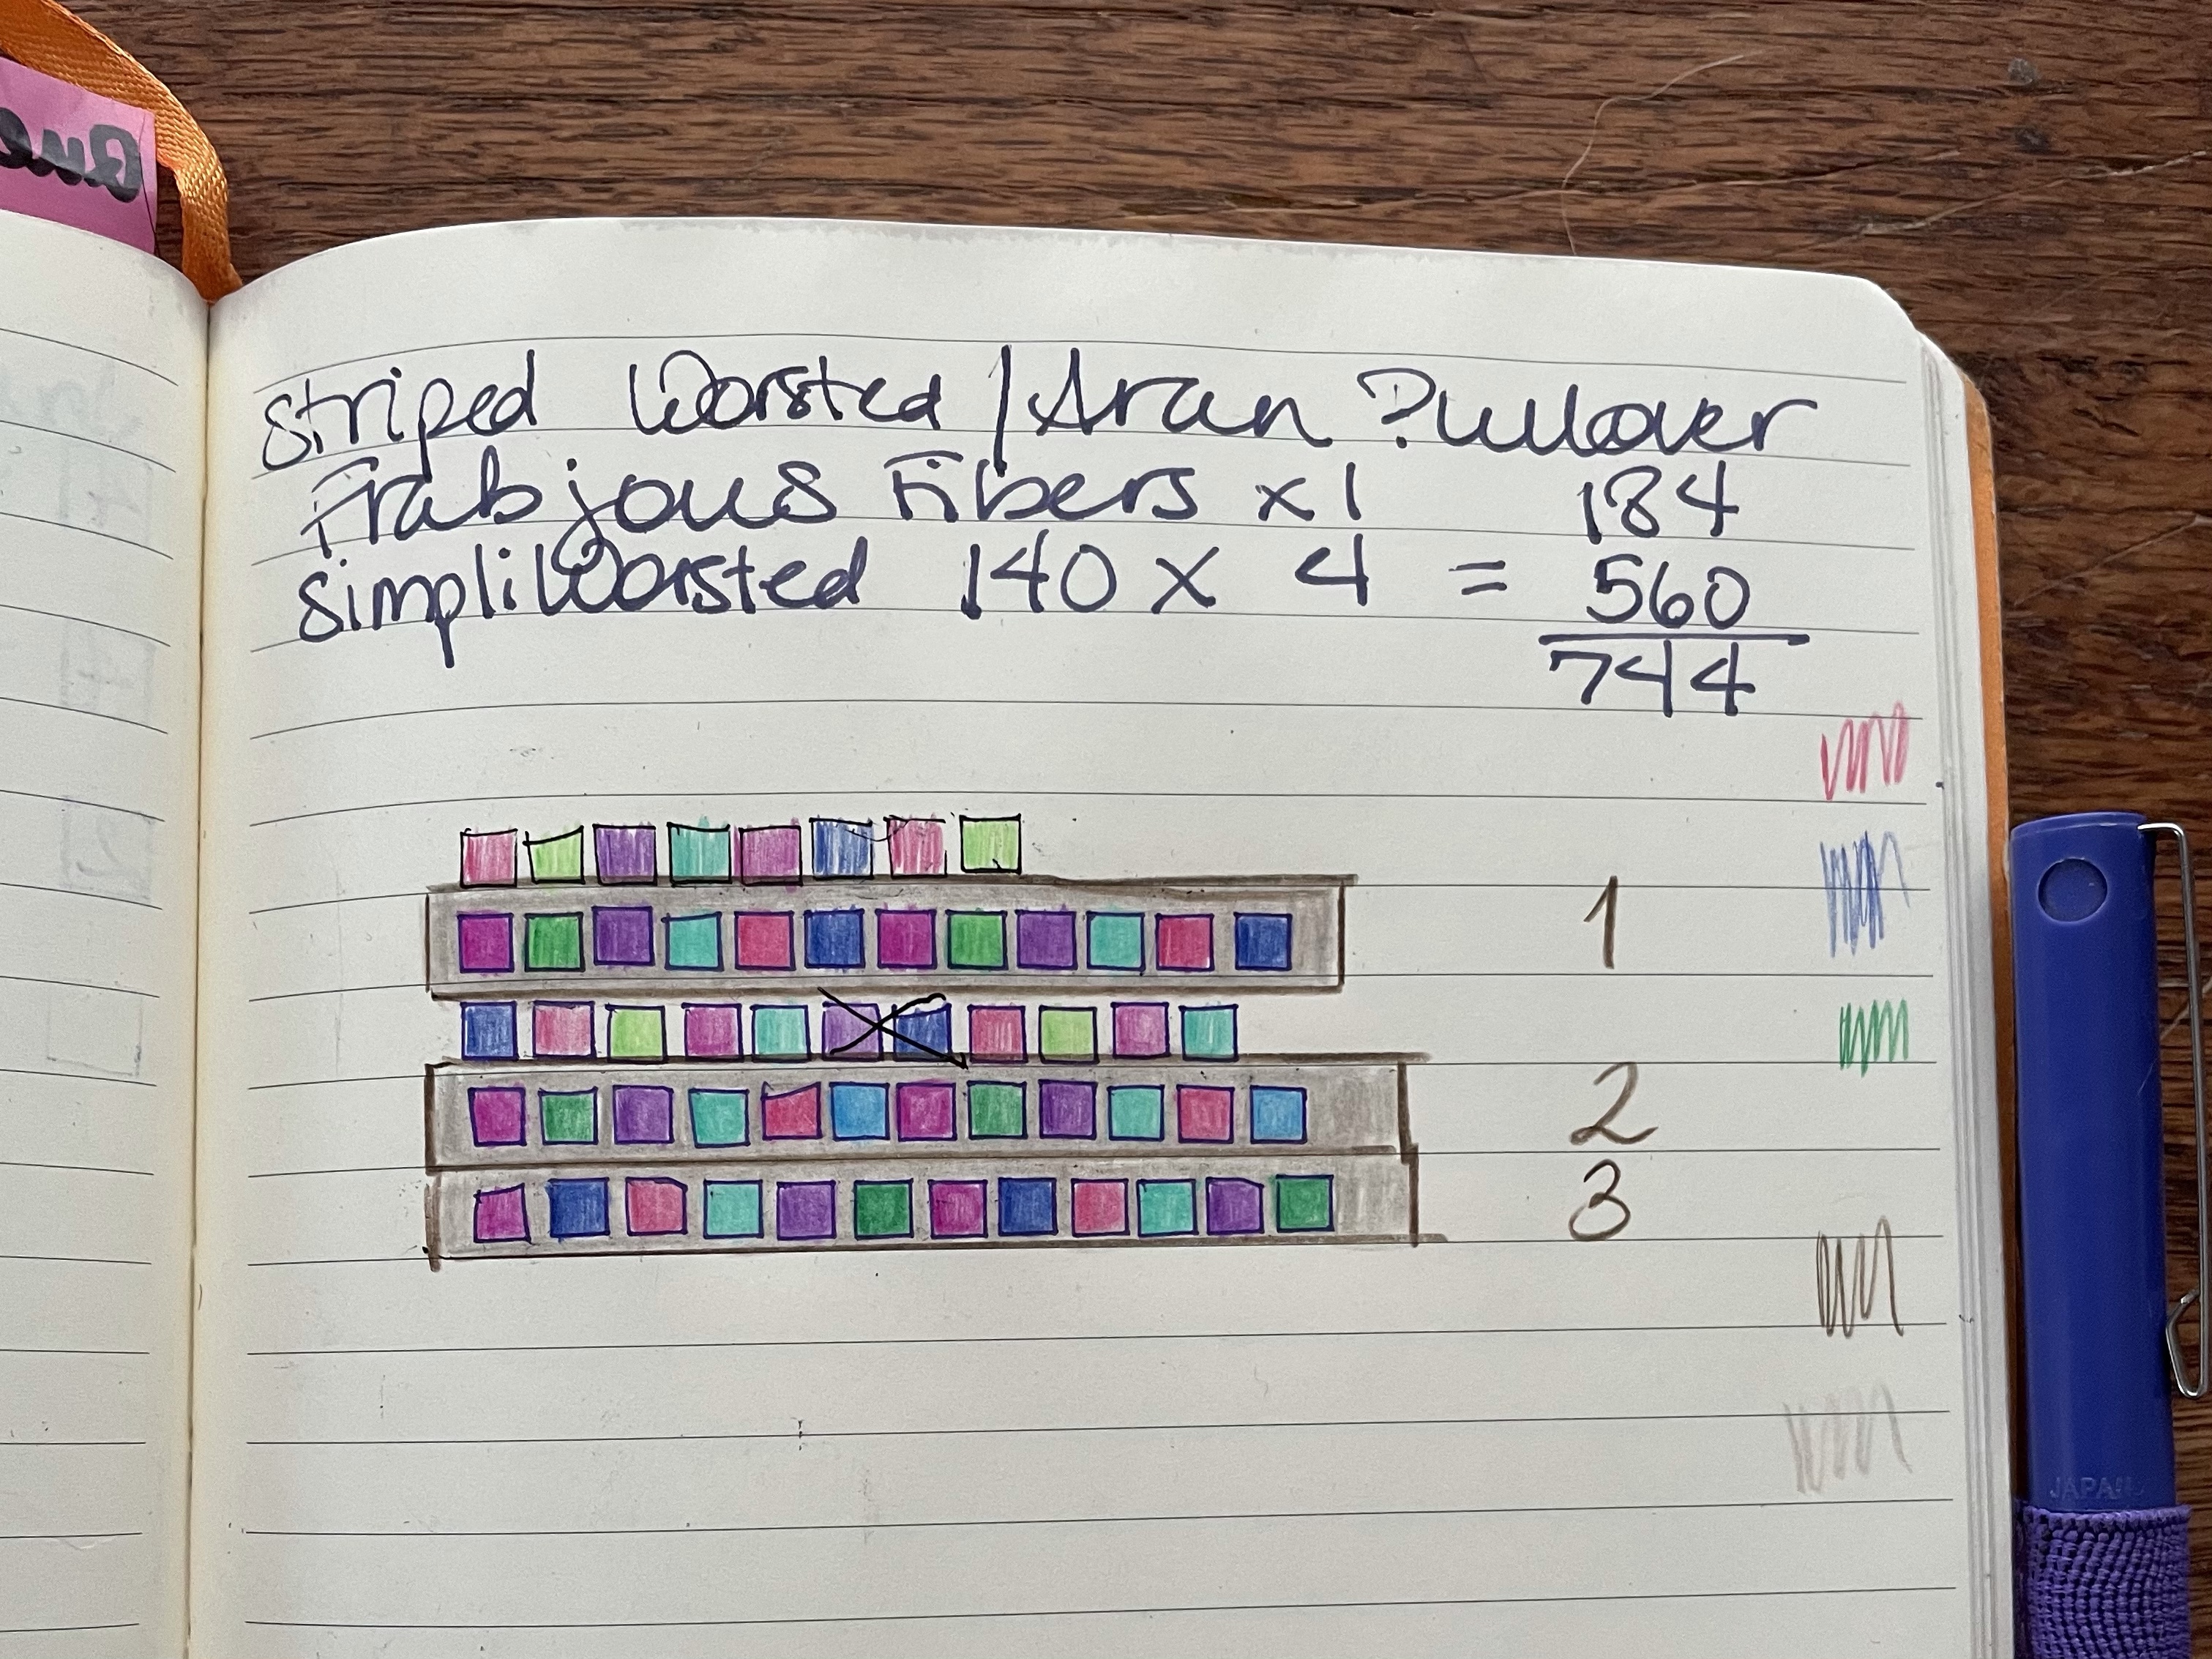 Striped Worsted / Aran Pullover
Frabjous Fibers x 1 184
SimpliWorsted 140 x 4 = 560
744
1
2
3
JAPAN